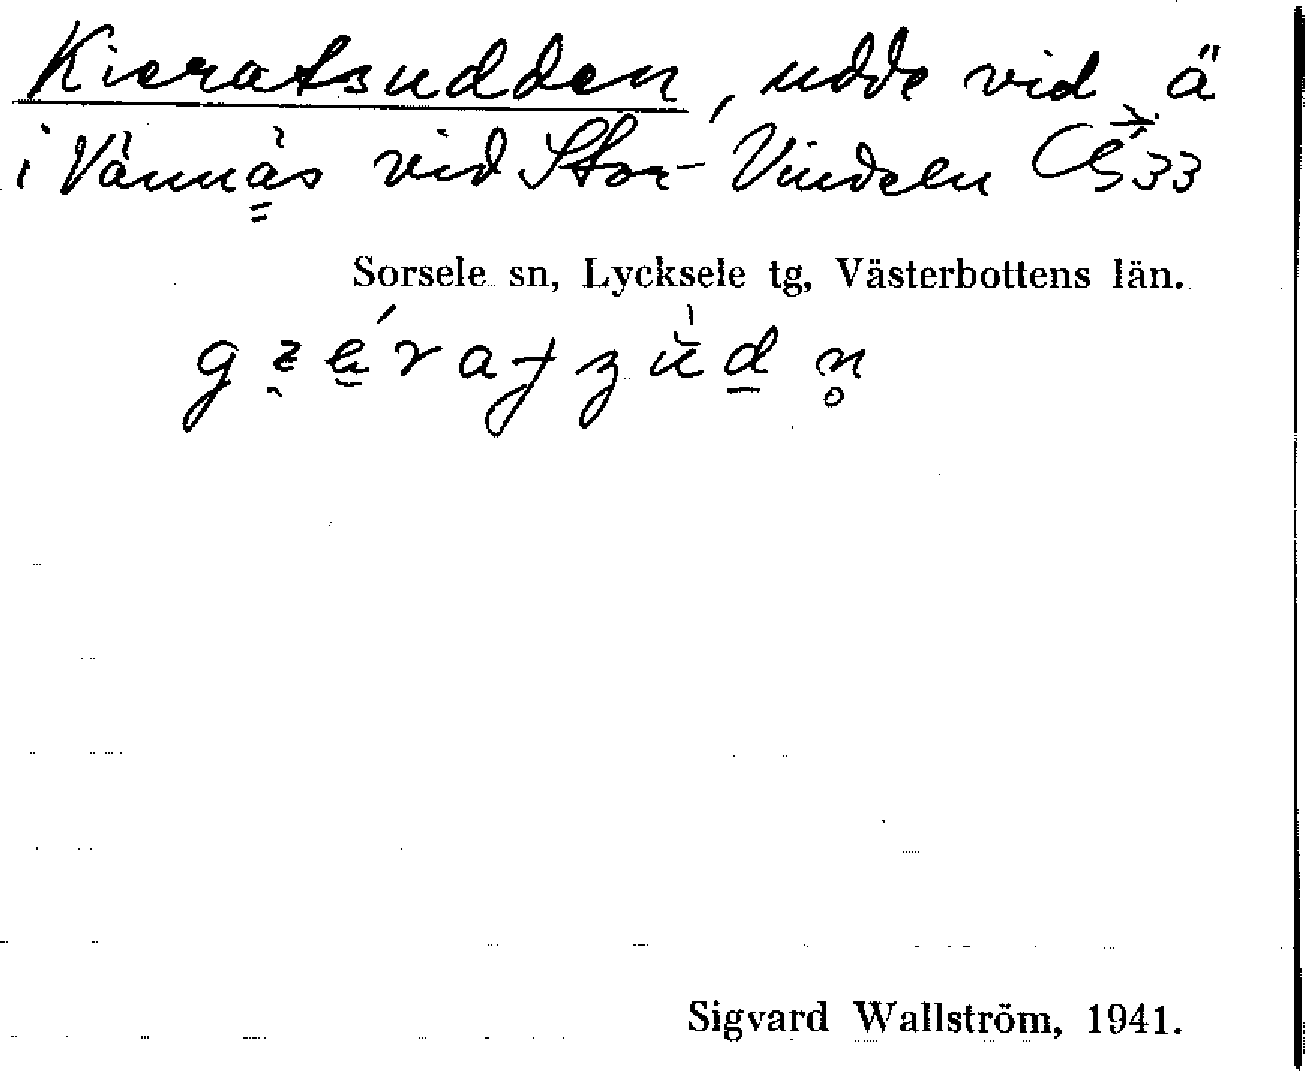 Kieratsudden, udde vid ä
i Vännäs vid Stor-Vindeln
Sorsele sn, Lycksele tg, Västerbottens län.
Sigvard Wallström, 1941.